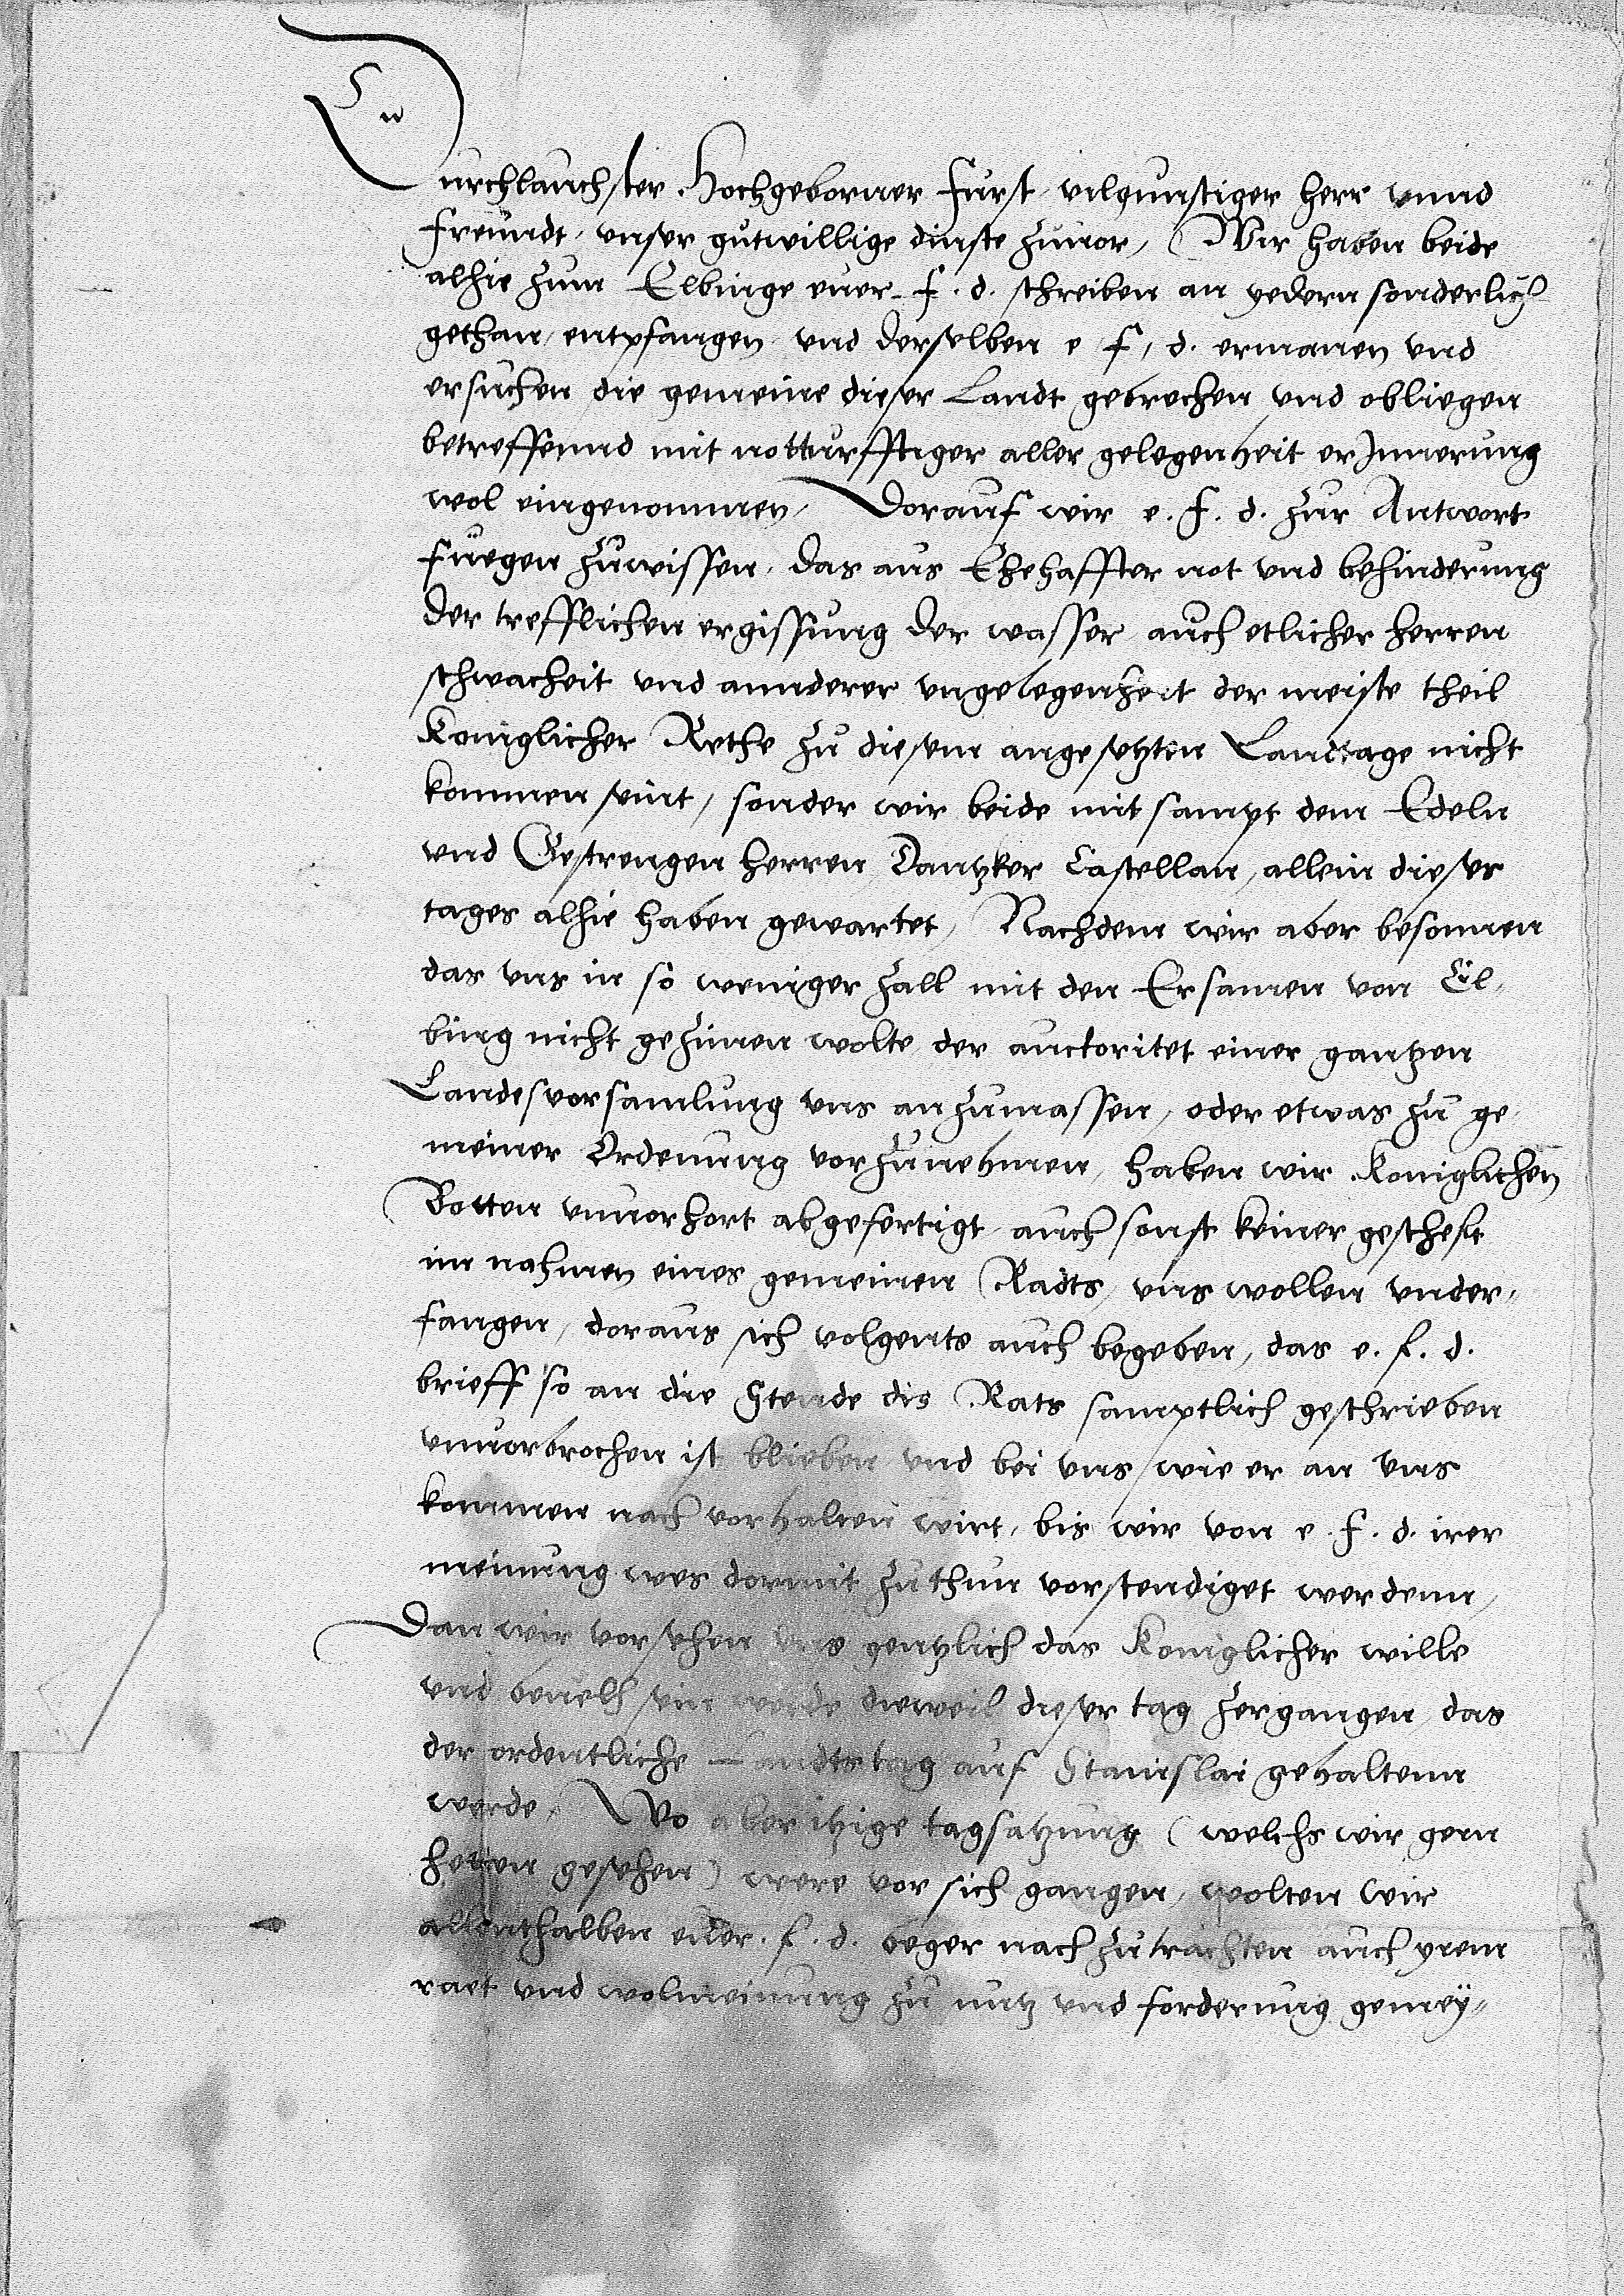 Durchlauchster Hochgeborner Furst vilgunstiger herr unnd
freundt, unser gutwillige dinste zuuor, Wir haben beide
alhie zum Elbinge euer f. d. schreiben an yedern sonderlich
gethan, entpfangen und derselben e. f. d. ermanen und
ersuchen die gemeine dieser Landt gebrechen und obliegen
betreffennd mit notturfftiger aller gelegenheit erJnnerung
wol eingenommen, Dorauf wir e. f. d. zur Antwort
fuegen zuwissen, das aus Ehehaffter not und behinderung
der trefflichen ergissung der wasser auch etlicher herren
schwacheit und annderer ungelegenheit der meiste theil
Koniglicher Rethe zu diesem angesetzten Landtage nicht
kommen seint, sonder wir beide mit sampt dem Edeln
und Gestrengen herren Dantzker Castellan, allein dieses
tages alhie haben gewartet, Nachdem wir aber besonnen
das uns in so weniger zall mit den Ersamen von El-
bing nicht gezimen wolte, der auctoritet einer gantzen
Landesvorsamlung uns anzumassen, oder etwas zu ge-
meiner Ordenung vorzunehmen, haben wir Koniglichen
Botten unuorhort abgefertigt auch sonst keiner gescheft
im nahmen eines gemeinen Radts, uns wollen under-
fangen, doraus sich volgents auch begeben, das e. f. d.
brieff so an die Stende dis Rats samptlich geschrieben
unuorbrochen ist blieben und bei uns wie er an uns
kommen nach vorhalten wirt, bis wir von e. f. d. irer
meinung wes dormit zuthun vorstendiget werdenn,
Dan wir vorsehen uns gentzlich das Koniglicher wille
und beuelh sein werde dieweil dieser tag zergangen, das
der ordentliche Landtstag auf Stanislai gehaltenn
werde. Wo aber itzige tagsatzung (welchs wir gern
hetten gesehen) were vor sich gangen, wolten wir
allenthalben euer. f. d. beger nach zutrachten auch yrem
raet und wolmeinung zu nutz und forderung gemey-